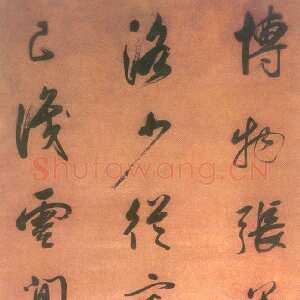 博物張
洛少從
已識雲間
Shufawang.CN